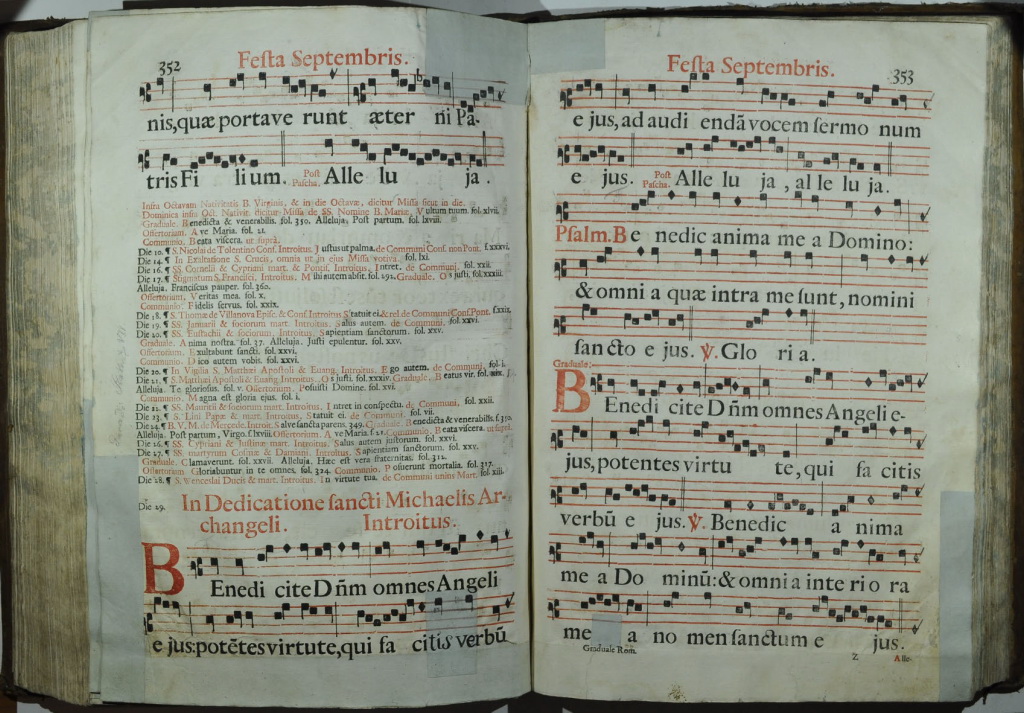 352
Festa Septembris.
nis, quæ portave runt æter ni Pa-
tris Fi li um. Post Pascha. Alle lu ja.
Infra Octavam Nativitatis B. Virginis, & in die Octavæ, dicitur Missa sicut in die.
Dominica infra Oct. Nativit. dicitur Missa de SS. Nomine B. Mariæ. Vultum tuum. fol. xlvii.
Graduale. Benedicta & venerabilis. fol. 350. Alleluja. Post partum. fol. lxviii.
Offertorium. Ave Maria. fol. 21.
Communio. Beata viscera. ut suprà.
Die 10. ¶ S. Nicolai de Tolentino Conf. Introitus. Justus ut palma. de Communi Conf. non Pont. f. xxxvi.
Die 14. ¶ In Exaltatione S. Crucis, omnia ut in ejus Missa votiva. fol. lxi.
Die 16. ¶ SS. Cornelii & Cypriani mart. & Pontif. Introitus. Intret. de Communi. fol. xxii.
Die 17. ¶ Stigmatum S. Francisci, Introitus. Mihi autem absit. fol. 292. Graduale. Os justi. fol. xxxiii.
Alleluja. Franciscus pauper. fol. 360.
Offertorium. Veritas mea. fol. x.
Communio. Fidelis servus. fol. xxix.
Die 18. ¶ S. Thomæ de Villanova Episc. & Conf. Introitus. Statuit ei. & rel. de Communi Conf. Pont. f. xxix.
Die 19. ¶ SS. Januarii & sociorum mart. Introitus. Salus autem. de Communi. fol. xxvi.
Die 20. ¶ SS. Eustachii & sociorum. Introitus. Sapientiam sanctorum. fol. xxv.
Graduale. Anima nostra. fol. 37. Alleluja. Justi epulentur. fol. xxv.
Offertorium. Exultabunt sancti. fol. xxvi.
Communio. Dico autem vobis. fol. xxvi.
Die 20. ¶ In Vigilia S. Matthæi Apostoli & Euang. Introitus. Ego autem. de Communi. fol. i.
Die 21. ¶ S. Matthæi Apostoli & Euang. Introitus. Os justi. fol. xxxiv. Graduale. Beatus vir. fol. xix.
Alleluja. Te gloriosus. fol. v. Offertorium. Posuisti Domine. fol. xvi.
Communio. Magna est gloria ejus. fol. i.
Die 22. ¶ SS. Mauritii & sociorum mart. Introitus. Intret in conspectu. de Communi. fol. xxii.
Die 23. ¶ S. Lini Papæ & mart. Introitus. Statuit ei. de Communi. fol. vii.
Die 24. ¶ B. V. M. de Mercede. Introit. Salve sancta parens. 349. Graduale. Benedicta & venerabilis. f. 350.
Alleluja. Post partum, Virgo. f. lxviii. Offertorium. Ave Maria. f. 21. Communio. Beata viscera. ut suprà.
Die 26. ¶ SS. Cypriani & Justinæ mart. Introitus. Salus autem justorum. fol. xxvi.
Die 27. ¶ SS. martyrum Cosmæ & Damiani. Introitus. Sapientiam sanctorum. fol. xxv.
Graduale. Clamaverunt. fol. xxvii. Alleluja. Hæc est vera fraternitas. fol. 312.
Offertorium. Gloriabuntur in te omnes. fol. 324. Communio. Posuerunt mortalia. fol. 317.
Die 28. ¶ S. Wenceslai Ducis & mart. Introitus. In virtute tua. de Communi unius Mart. fol. xiii.
Die 29. In Dedicatione sancti Michaelis Ar-
changeli. Introitus.
BEnedi cite Dñm omnes Angeli
e jus: potẽtes virtute, qui fa citis verbũ
Festa Septembris.
353
e jus, ad audi endã vocem sermo num
e jus. Post Pascha. Alle lu ja, al le lu ja.
Psalm. Be nedic anima me a Domino:
& omni a quæ intra me sunt, nomini
san cto e jus. ℣. Glo ri a.
Graduale.
BEnedi cite Dñm omnes Angeli e-
jus, potentes virtu te, qui fa citis
verbũ e jus. ℣. Benedic a nima
me a Do minũ: & omni a inte ri o ra
me a no men sanctum e jus.
Graduale Rom. Z Alle-